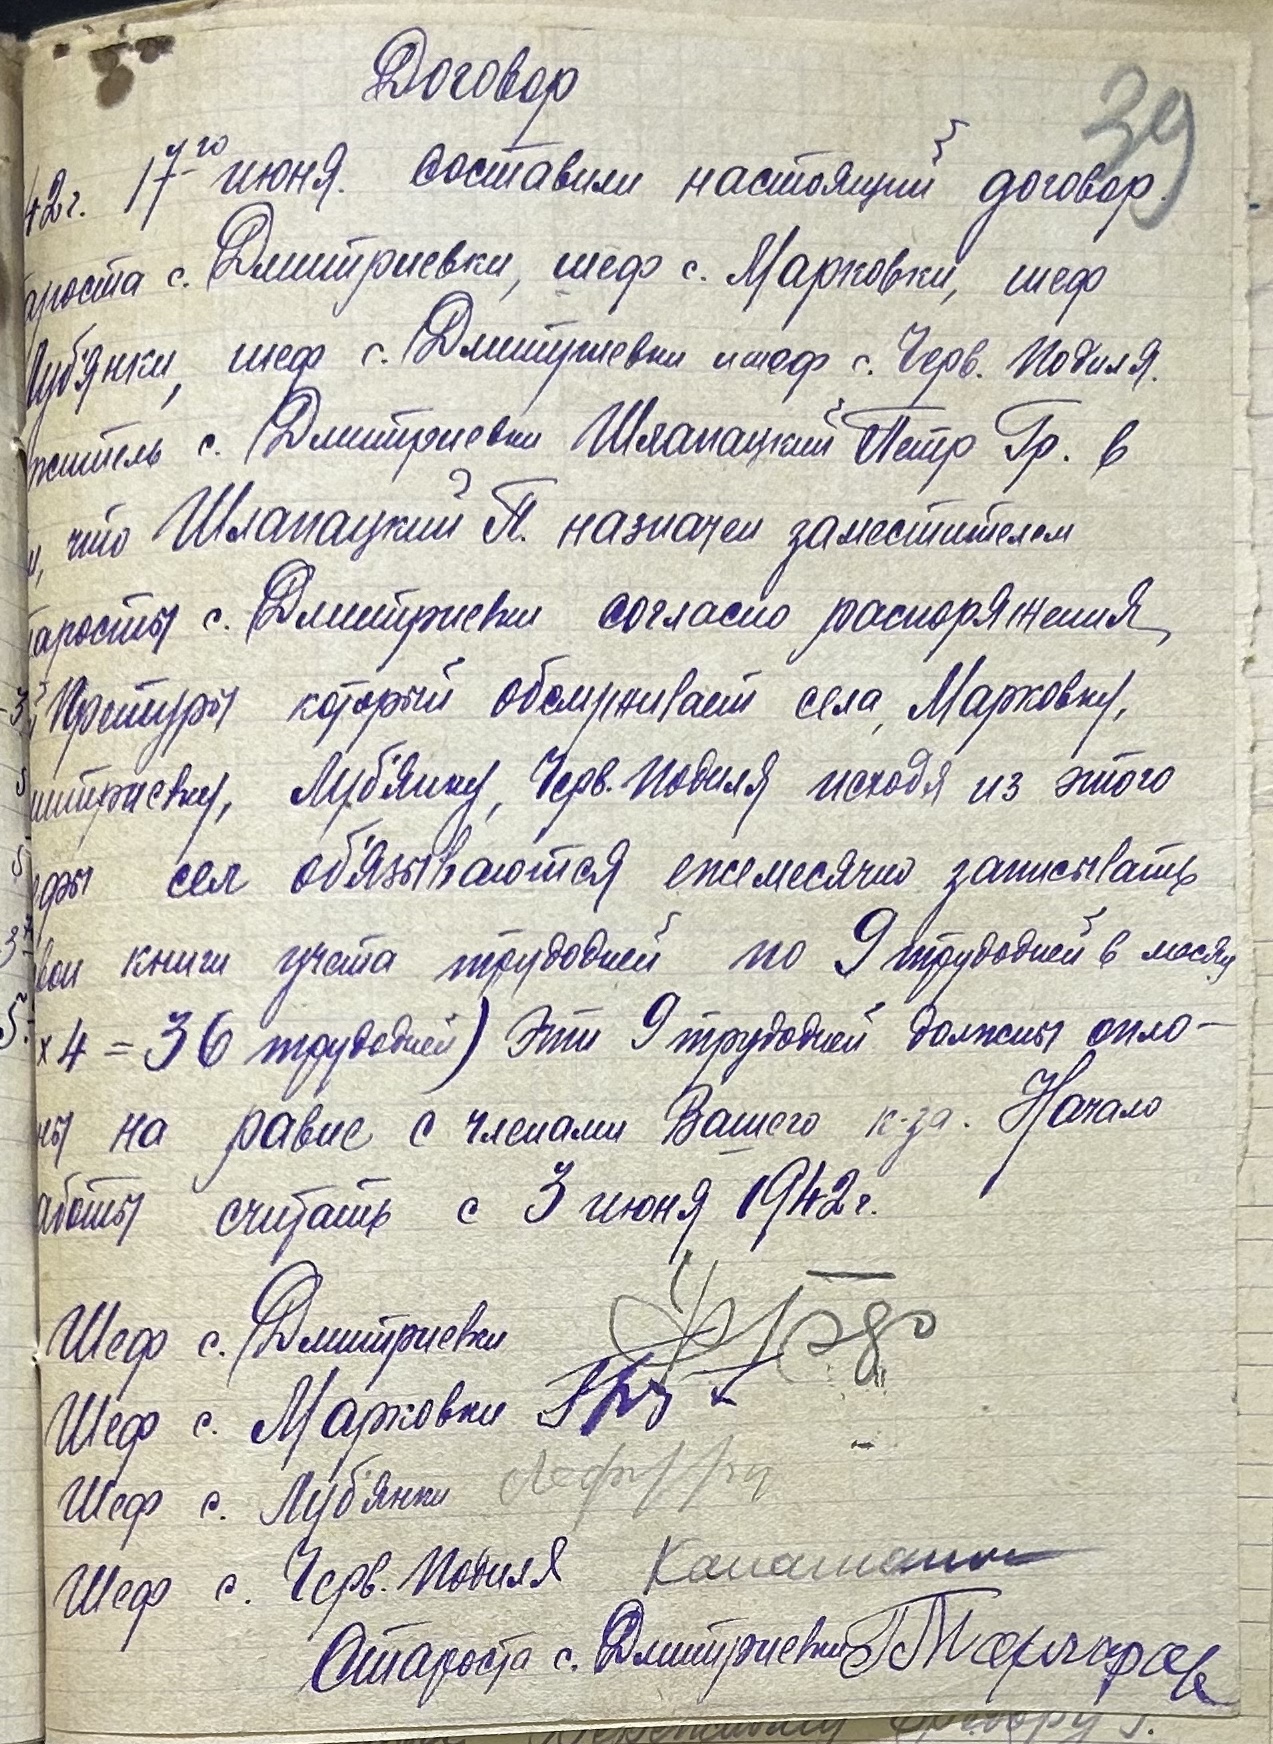 Договор
39
42г. 17го июня. составили настоящий договор.
ароста с. Дмитриевки, шеф с. Марковки, шеф
Луб'янки, шеф с. Дмитриевки и шеф с. Черв. Подиля.
житель с. Дмитриевки Шлапацкий Петр Гр. в
м, что Шлапацкий П. назначен заместителем
таросты с. Дмитриевки согласно распоряжения
й Претуры который обслуживает села, Марковку,
митриевку, Луб'янку, Черв. Подиля исходя из этого
ефы сел об'язываются ежемесячно записывать
вои книги учета трудодней по 9 трудодней в месяц
х 4 = 36 трудодней) Эти 9 трудодней должны опла-
ны на равне с членами Вашего к-за. Начало
аботы считать с 3 июня 1942 г.
Шеф с. Дмитриевки
Шеф с. Марковки
Шеф с. Луб'янки
Шеф с. Черв. Подиля
Староста с. Дмитриевки